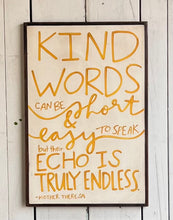 KIND
WORDS
CAN BE short
& easy TO SPEAK
but their
ECHO IS
TRULY ENDLESS.
-MOTHER THERESA